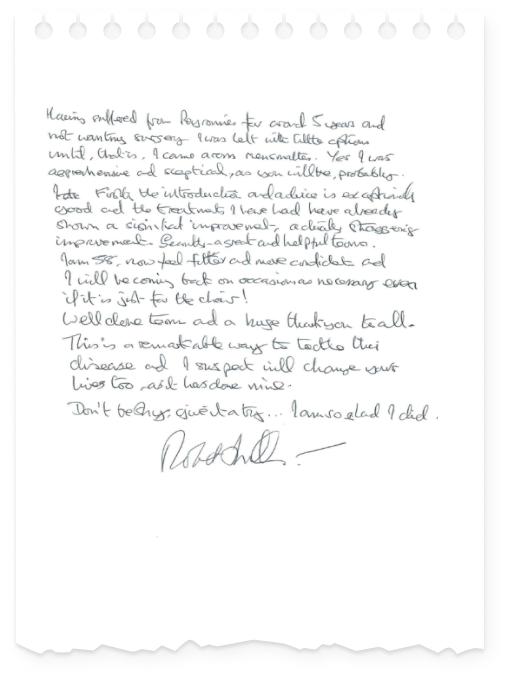 Having suffered from Peyronnies for around 5 years and
not wanting surgery I was left with little options
until, that is, I came across mensmatters. Yes I was
apprehensive and sceptical, as you will be, probably.
Firstly the introduction and advice is exceptionally
good and the treatments I have had have already
shown a significant improvement, actually staggering
improvement. Secondly - a great and helpful team.
I am 58, now feel fitter and more confident and
I will be coming back on occasion as necessary even
if it is just for the chair!
Well done team and a huge thankyou to all.
This is a remarkable way to tackle this
disease and I suspect will change your
lives too, as it has done mine.
Don't be shy, give it a try... I am so glad I did.